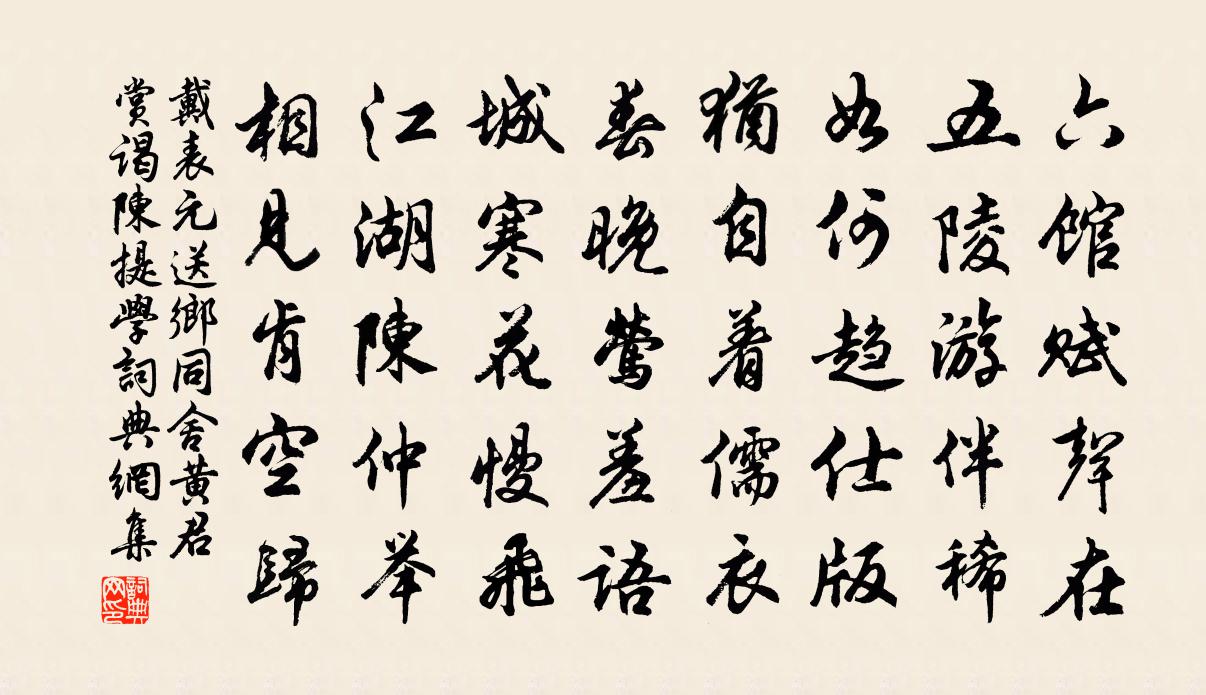 六館賦聲在
五陵游伴稀
如何趋仕版
猶自着儒衣
春晚鶯羞語
城寒花慢飛
江湖陳仲举
相見肯空歸
戴表元送鄉同舍黄君
賞谒陳提學詞典網集
詞典网印